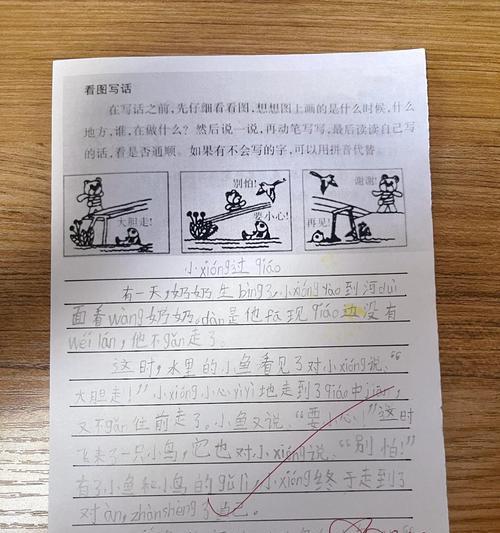 看图写话
在写话之前,先仔细看看图,想想图上画的是什么时候,什么
地方,谁,在做什么?然后说一说,再动笔写写,最后读读自己写
的话,看是否通顺。如果有不会写的字,可以用拼音代替。
大胆走!
别怕!
要小心!
谢谢!
再见!
小xióng过qiáo
有一天,奶奶生bìng了,小xióng yào到河duì
面看wàng奶奶。dàn是他发现qiáo边没有
wéi lán,他不gǎn走了。
这时,水里的小鱼看见了对小xióng说:“
大胆走!”小xióng小心yìyì地走到了qiáo中jiān,
又不gǎn往前走了。小鱼又说:“要小心!”这时
飞来了一只小鸟,它也对小xióng说:“别怕!”
有了小鱼和小鸟的gǔ lì,小xióng终于走到了
对àn,zhànshèng了自己。